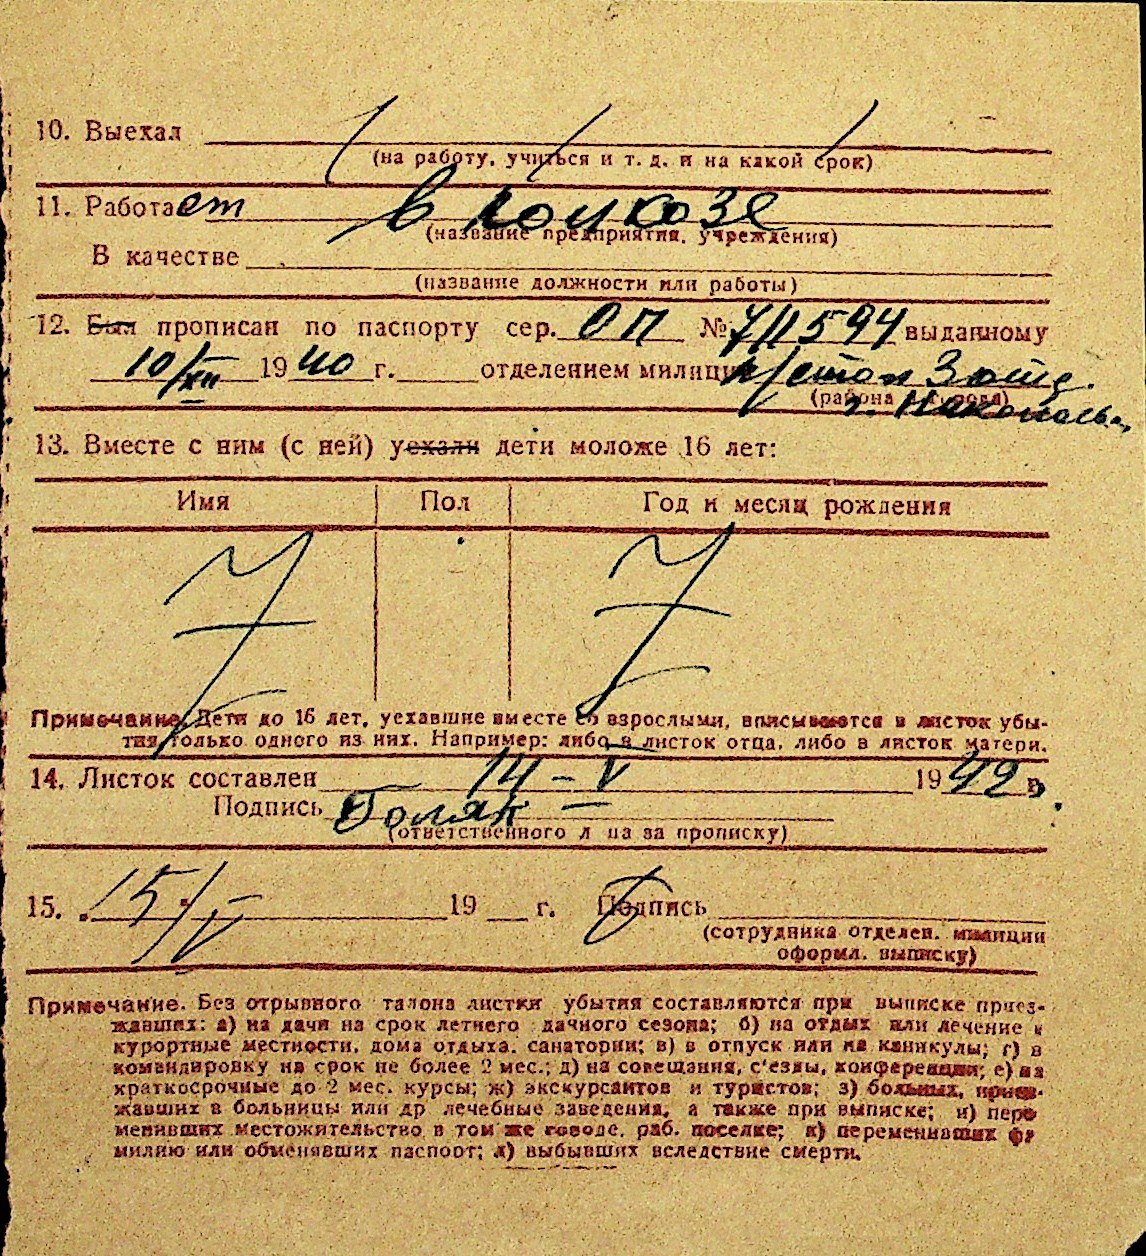 10. Выехал
(на работу, учиться и т. д. и на какой срок)
11. Работает в колхозе
(название предприятия, учреждения)
В качестве
(название должности или работы)
12. Был прописан по паспорту сер. ОП № 711594 выданному
10/XII 1940 г. отделением милиции
(района и города)
13. Вместе с ним (с ней) уехали дети моложе 16 лет:
Имя Пол Год и месяц рождения
Примечание. Дети до 16 лет, уехавшие вместе со взрослыми, вписываются в листок убы-
тия только одного из них. Например: либо в листок отца, либо в листок матери.
14. Листок составлен 14-V 1942 г.
Подпись
(ответственного л ца за прописку)
15. 15/V 19 г. Подпись
(сотрудника отделен. милиции
оформл. выписку)
Примечание. Без отрывного талона листки убытия составляются при выписке приез-
жавших: а) на дачи на срок летнего дачного сезона; б) на отдых или лечение в
курортные местности, дома отдыха, санатории; в) в отпуск или на каникулы; г) в
командировку на срок не более 2 мес.; д) на совещания, с'езды, конференции; е) на
краткосрочные до 2 мес. курсы; ж) экскурсантов и туристов; з) больных, приез-
жавших в больницы или др лечебные заведения, а также при выписке; и) пере
менивших местожительство в том же городе, раб. поселке; к) переменивших фа
милию или обменявших паспорт; л) выбывших вследствие смерти.